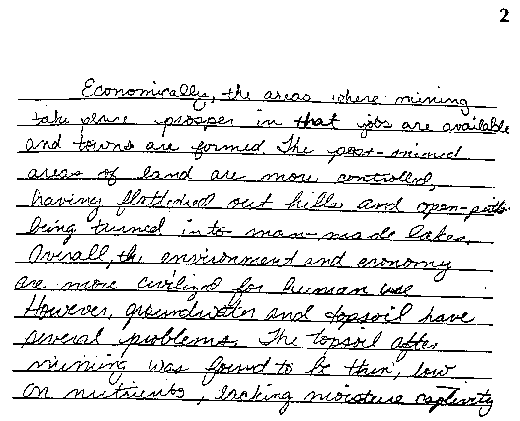 2
Economically, the areas where mining
take place prosper in that jobs are available
and towns are formed The post-mined
areas of land are more controlled,
having flattened out hills and open-pits
being turned into man-made lakes.
Overall, the environment and economy
are more civilized for human use
However, groundwater and topsoil have
several problems. The topsoil after
mining was found to be thin, low
on nutrients, lacking moisture captivity